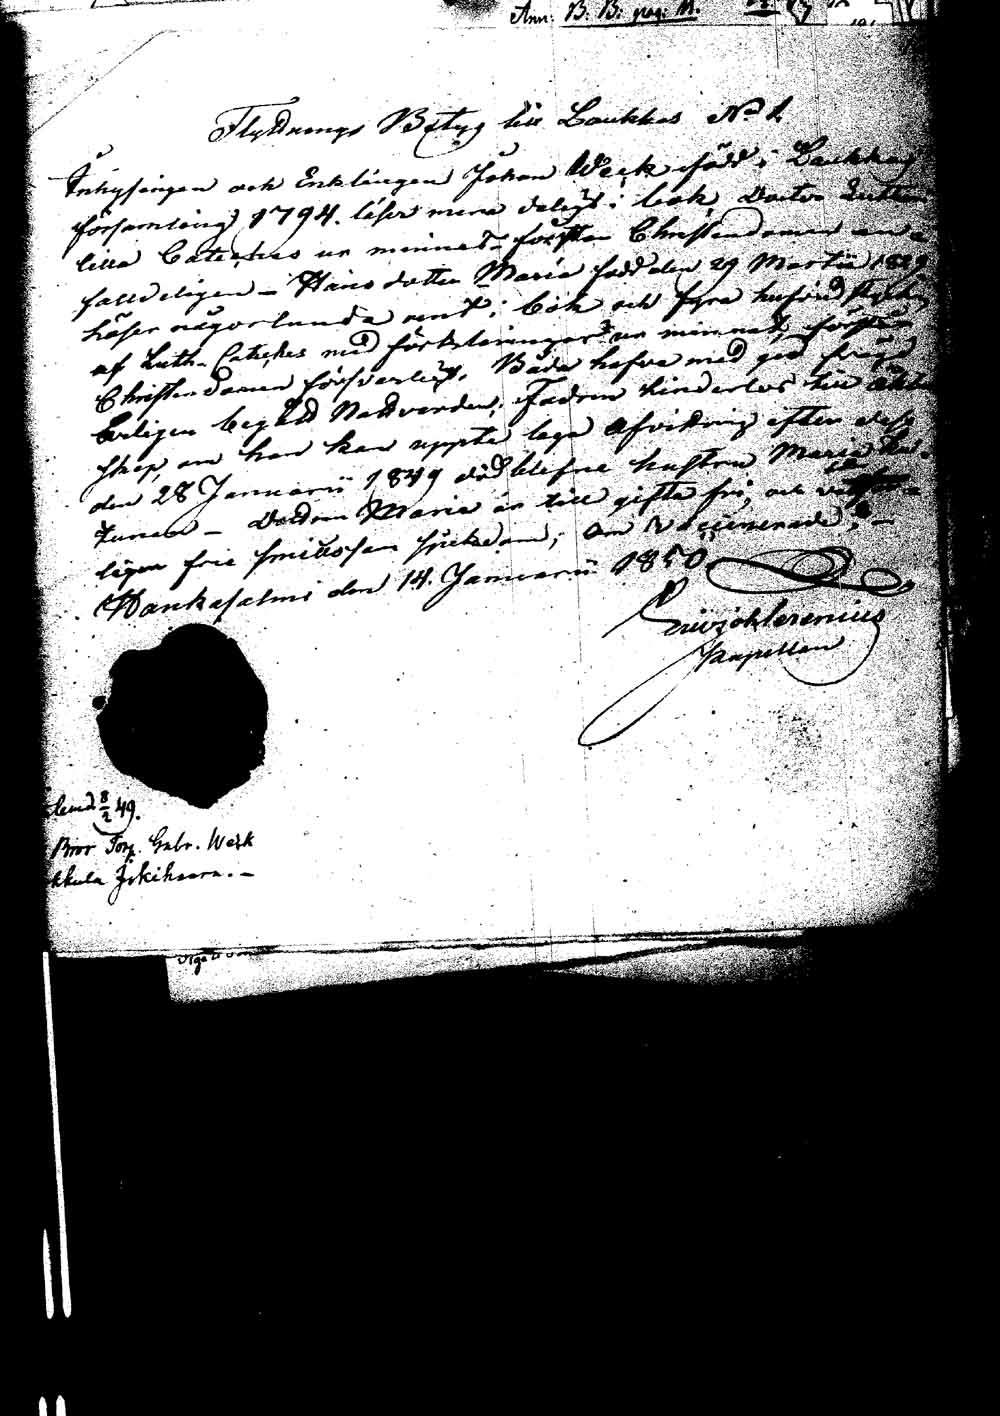 Ann: B. B. pag. M.
Flyttnings Betyg till Laukkas No 1.
Inhysingen och Enklingen Johan Week född i Laukkas
församling 1794. läser mera deligt i bok, Doctor Luthers
lilla Cateches ur minnet förstår Christendomen en-
falldeligen – Hans dotter Maria född den 29 Martii 1829
läser någorlunda rent i bok och fyra hufvud stycken
af Luth. Cateches med förklaringar ur minnet, förstår
Christendomen försvarligt. Båda hafva med god frägd
begådd Nattvarden; Fadren hinderlös till ägten-
skap, om han kan uppte laga afvittring efter dess
den 28 Januarii 1849 död blefne hustru Maria
– Dottren Maria är till gifte fri, och
ligen frie smittosam sjukdom; Om vaccinerade,
Hankasalmi den 14. Januarii 1850
Capellan
8/2 49.
Bror Torp. Gabr. Week